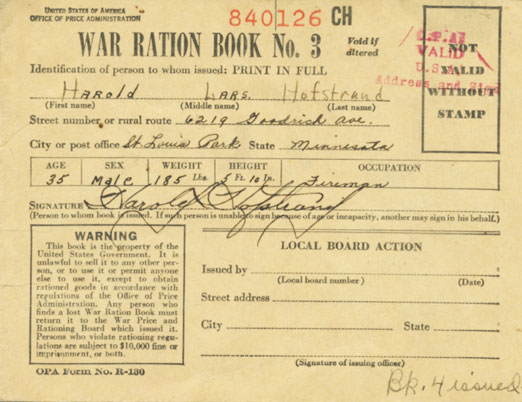 UNITED STATES OF AMERICA
OFFICE OF PRICE ADMINISTRATION
840126 CH
WAR RATION BOOK No. 3
Void if altered
Identification of person to whom issued: PRINT IN FULL
Harold Lars Hofstrand
(First name) (Middle name) (Last name)
Street number or rural route 6219 Goodrich Ave.
City or post office St. Louis Park State Minnesota
AGE SEX WEIGHT HEIGHT OCCUPATION
35 Male 185 Lbs. 5 Ft. 10 In. Fireman
SIGNATURE Harold Hofstrand
(Person to whom book is issued. If such person is unable to sign because of age or incapacity, another may sign in his behalf.)
NOT
VALID
WITHOUT
STAMP
VALID
U.S.A.
Address and
WARNING
This book is the property of the
United States Government. It is
unlawful to sell it to any other per-
son, or to use it or permit anyone
else to use it, except to obtain
rationed goods in accordance with
regulations of the Office of Price
Administration. Any person who
finds a lost War Ration Book must
return it to the War Price and
Rationing Board which issued it.
Persons who violate rationing regu-
lations are subject to $10,000 fine or
imprisonment, or both.
OPA Form No. R-130
LOCAL BOARD ACTION
Issued by
(Local board number) (Date)
Street address
City State
(Signature of issuing officer)
Bk. 4 issued